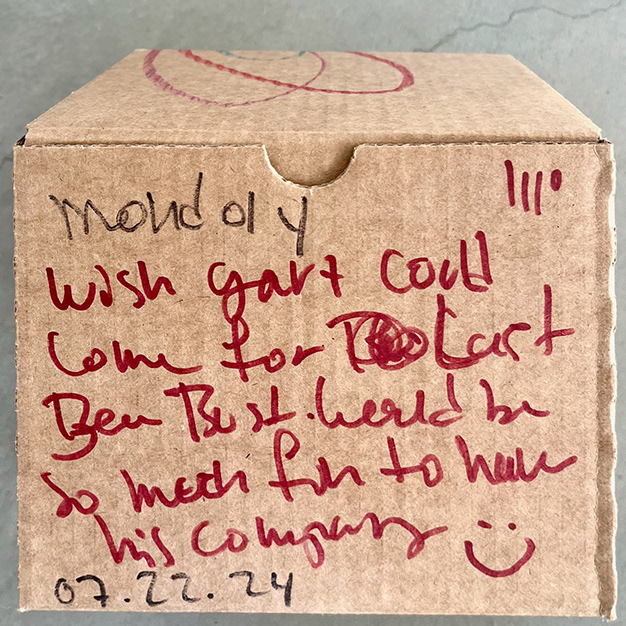 Monday
Wish Gart could
come for Last
Ben Bust. Would be
so much fun to have
his company
07.22.24